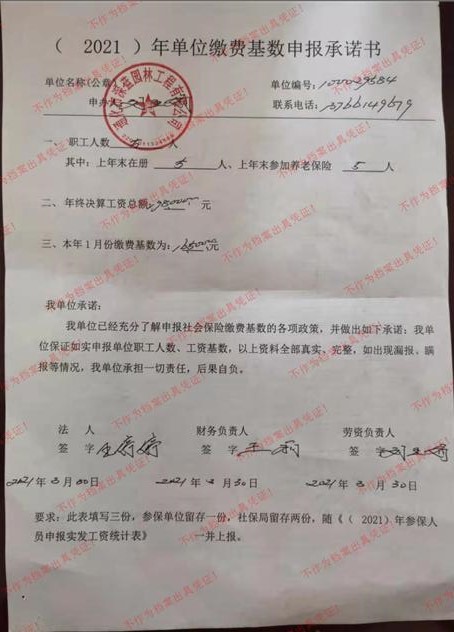 （ 2021 ）年单位缴费基数申报承诺书
单位名称(公章)
单位编号：100029584
申办人：
联系电话：13766149679
一、 职工人数 5 人
其中：上年末在册 5 人、上年末参加养老保险 5 人
二、年终决算工资总额: 元
三、本年 1 月份缴费基数为: 元
我单位承诺：
我单位已经充分了解申报社会保险缴费基数的各项政策，并做出如下承诺：我单
位保证如实申报单位职工人数、工资基数，以上资料全部真实、完整，如出现漏报、瞒
报等情况，我单位承担一切责任，后果自负。
法 人 财务负责人 劳资负责人
签 字 签 字 王莉 签 字
2021 年 3 月 30 日 2021 年 3 月 30 日 2021 年 3 月 30 日
要求：此表填写三份，参保单位留存一份，社保局留存两份，随《（ 2021）年参保人
员申报实发工资统计表》 一并上报。
不作为档案出具凭证！